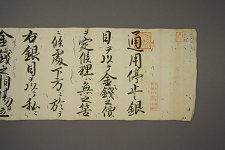 通用停止之銀
目ヲ以テ金銭之價
ヲ定候程ハ無之筈
ニ候處下方ニ於テ
右銀目ヲ以テ私ニ
金銭之相場